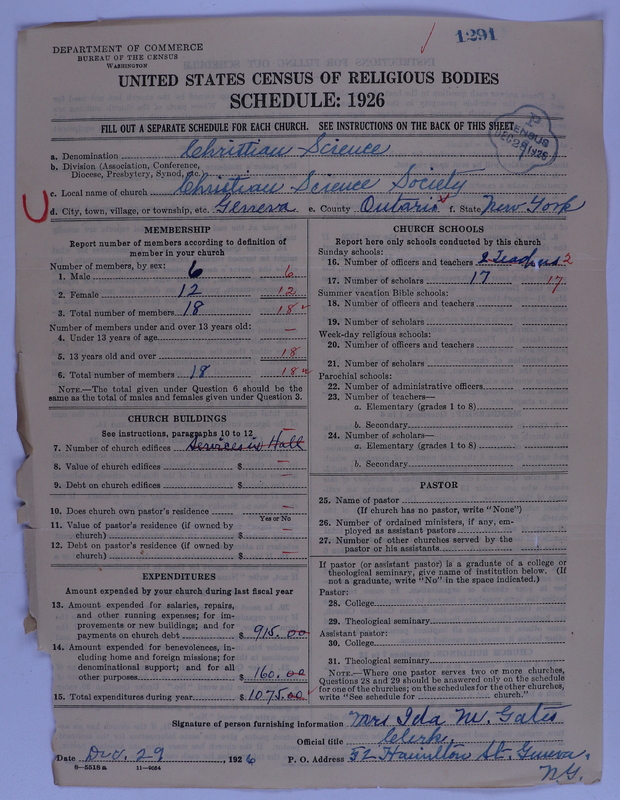 1291
DEPARTMENT OF COMMERCE
BUREAU OF THE CENSUS
WASHINGTON
UNITED STATES CENSUS OF RELIGIOUS BODIES
SCHEDULE: 1926
FILL OUT A SEPARATE SCHEDULE FOR EACH CHURCH. SEE INSTRUCTIONS ON THE BACK OF THIS SHEET
CENSUS DEC 28 1926
a. Denomination Christian Science
b. Division (Association, Conference,
Diocese, Presbytery, Synod, etc.)
c. Local name of church Christian Science Society
d. City, town, village, or township, etc. Geneva e. County Ontario f. State New York
MEMBERSHIP
Report number of members according to definition of
member in your church
Number of members, by sex:
1. Male 6 6
2. Female 12 12
3. Total number of members 18 18
Number of members under and over 13 years old:
4. Under 13 years of age —
5. 13 years old and over 18
6. Total number of members 18 18
NOTE.—The total given under Question 6 should be the
same as the total of males and females given under Question 3.
CHURCH BUILDINGS
See instructions, paragraphs 10 to 12
7. Number of church edifices Services in Hall
8. Value of church edifices $ —
9. Debt on church edifices $ —
10. Does church own pastor's residence —
Yes or No
11. Value of pastor's residence (if owned by
church) $ —
12. Debt on pastor's residence (if owned by
church) $ —
EXPENDITURES
Amount expended by your church during last fiscal year
13. Amount expended for salaries, repairs,
and other running expenses; for im-
provements or new buildings; and for
payments on church debt $ 915.00
14. Amount expended for benevolences, in-
cluding home and foreign missions; for
denominational support; and for all
other purposes $ 160.00
15. Total expenditures during year $ 1075.00
CHURCH SCHOOLS
Report here only schools conducted by this church
Sunday schools:
16. Number of officers and teachers 2 Teachers 2
17. Number of scholars 17 17
Summer vacation Bible schools:
18. Number of officers and teachers
19. Number of scholars
Week-day religious schools:
20. Number of officers and teachers
21. Number of scholars
Parochial schools:
22. Number of administrative officers
23. Number of teachers—
a. Elementary (grades 1 to 8)
b. Secondary
24. Number of scholars—
a. Elementary (grades 1 to 8)
b. Secondary
PASTOR
25. Name of pastor
(If church has no pastor, write "None")
26. Number of ordained ministers, if any, em-
ployed as assistant pastors
27. Number of other churches served by the
pastor or his assistants
If pastor (or assistant pastor) is a graduate of a college or
theological seminary, give name of institution below. (If
not a graduate, write "No" in the space indicated.)
Pastor:
28. College
29. Theological seminary
Assistant pastor:
30. College
31. Theological seminary
NOTE.—Where one pastor serves two or more churches,
Questions 28 and 29 should be answered only on the schedule
for one of the churches; on the schedules for the other churches,
write "See schedule for church."
Signature of person furnishing information Mrs Ida M. Gates
Official title Clerk,
Date Dec. 29, 1926 P. O. Address 52 Hamilton St. Geneva,
N.Y.
8—5518a 11—9054